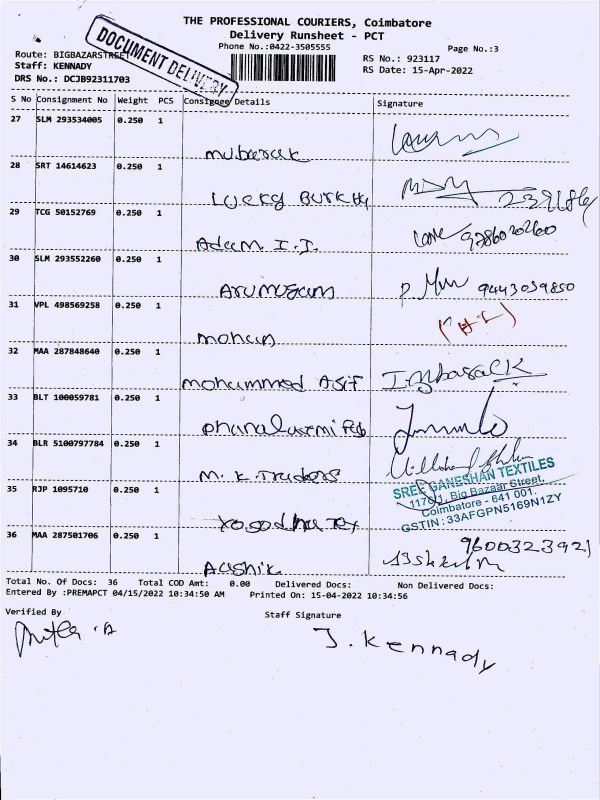 THE PROFESSIONAL COURIERS, Coimbatore
Delivery Runsheet - PCT
Phone No.:0422-3505555
Page No.:3
DOCUMENT DELIVERY
Route: BIGBAZARSTREET
Staff: KENNADY
DRS No.: DCJB92311703
RS No.: 923117
RS Date: 15-Apr-2022
S No Consignment No Weight PCS Consignee Details Signature
27 SLM 293534005 0.250 1
mubarak
28 SRT 14614623 0.250 1
Lucky
29 TCG 50152769 0.250 1
Adam I.I.
30 SLM 293552260 0.250 1
Arumugam 9443039850
31 VPL 498569258 0.250 1
mohan
32 MAA 287848640 0.250 1
mohammed Asif
33 BLT 100059781 0.250 1
Dhanalaxmi Fab
34 BLR 5100797784 0.250 1
M.K. Traders
SREE GANESHAN TEXTILES
1178/1, Big Bazaar Street,
Coimbatore - 641 001.
GSTIN : 33AFGPN5169N1ZY
35 RJP 1095710 0.250 1
Yasodha Tex
36 MAA 287501706 0.250 1
9600323921
Aashik
Total No. Of Docs: 36 Total COD Amt: 0.00 Delivered Docs: Non Delivered Docs:
Entered By :PREMAPCT 04/15/2022 10:34:50 AM Printed On: 15-04-2022 10:34:56
Verified By
Staff Signature
J. Kennady